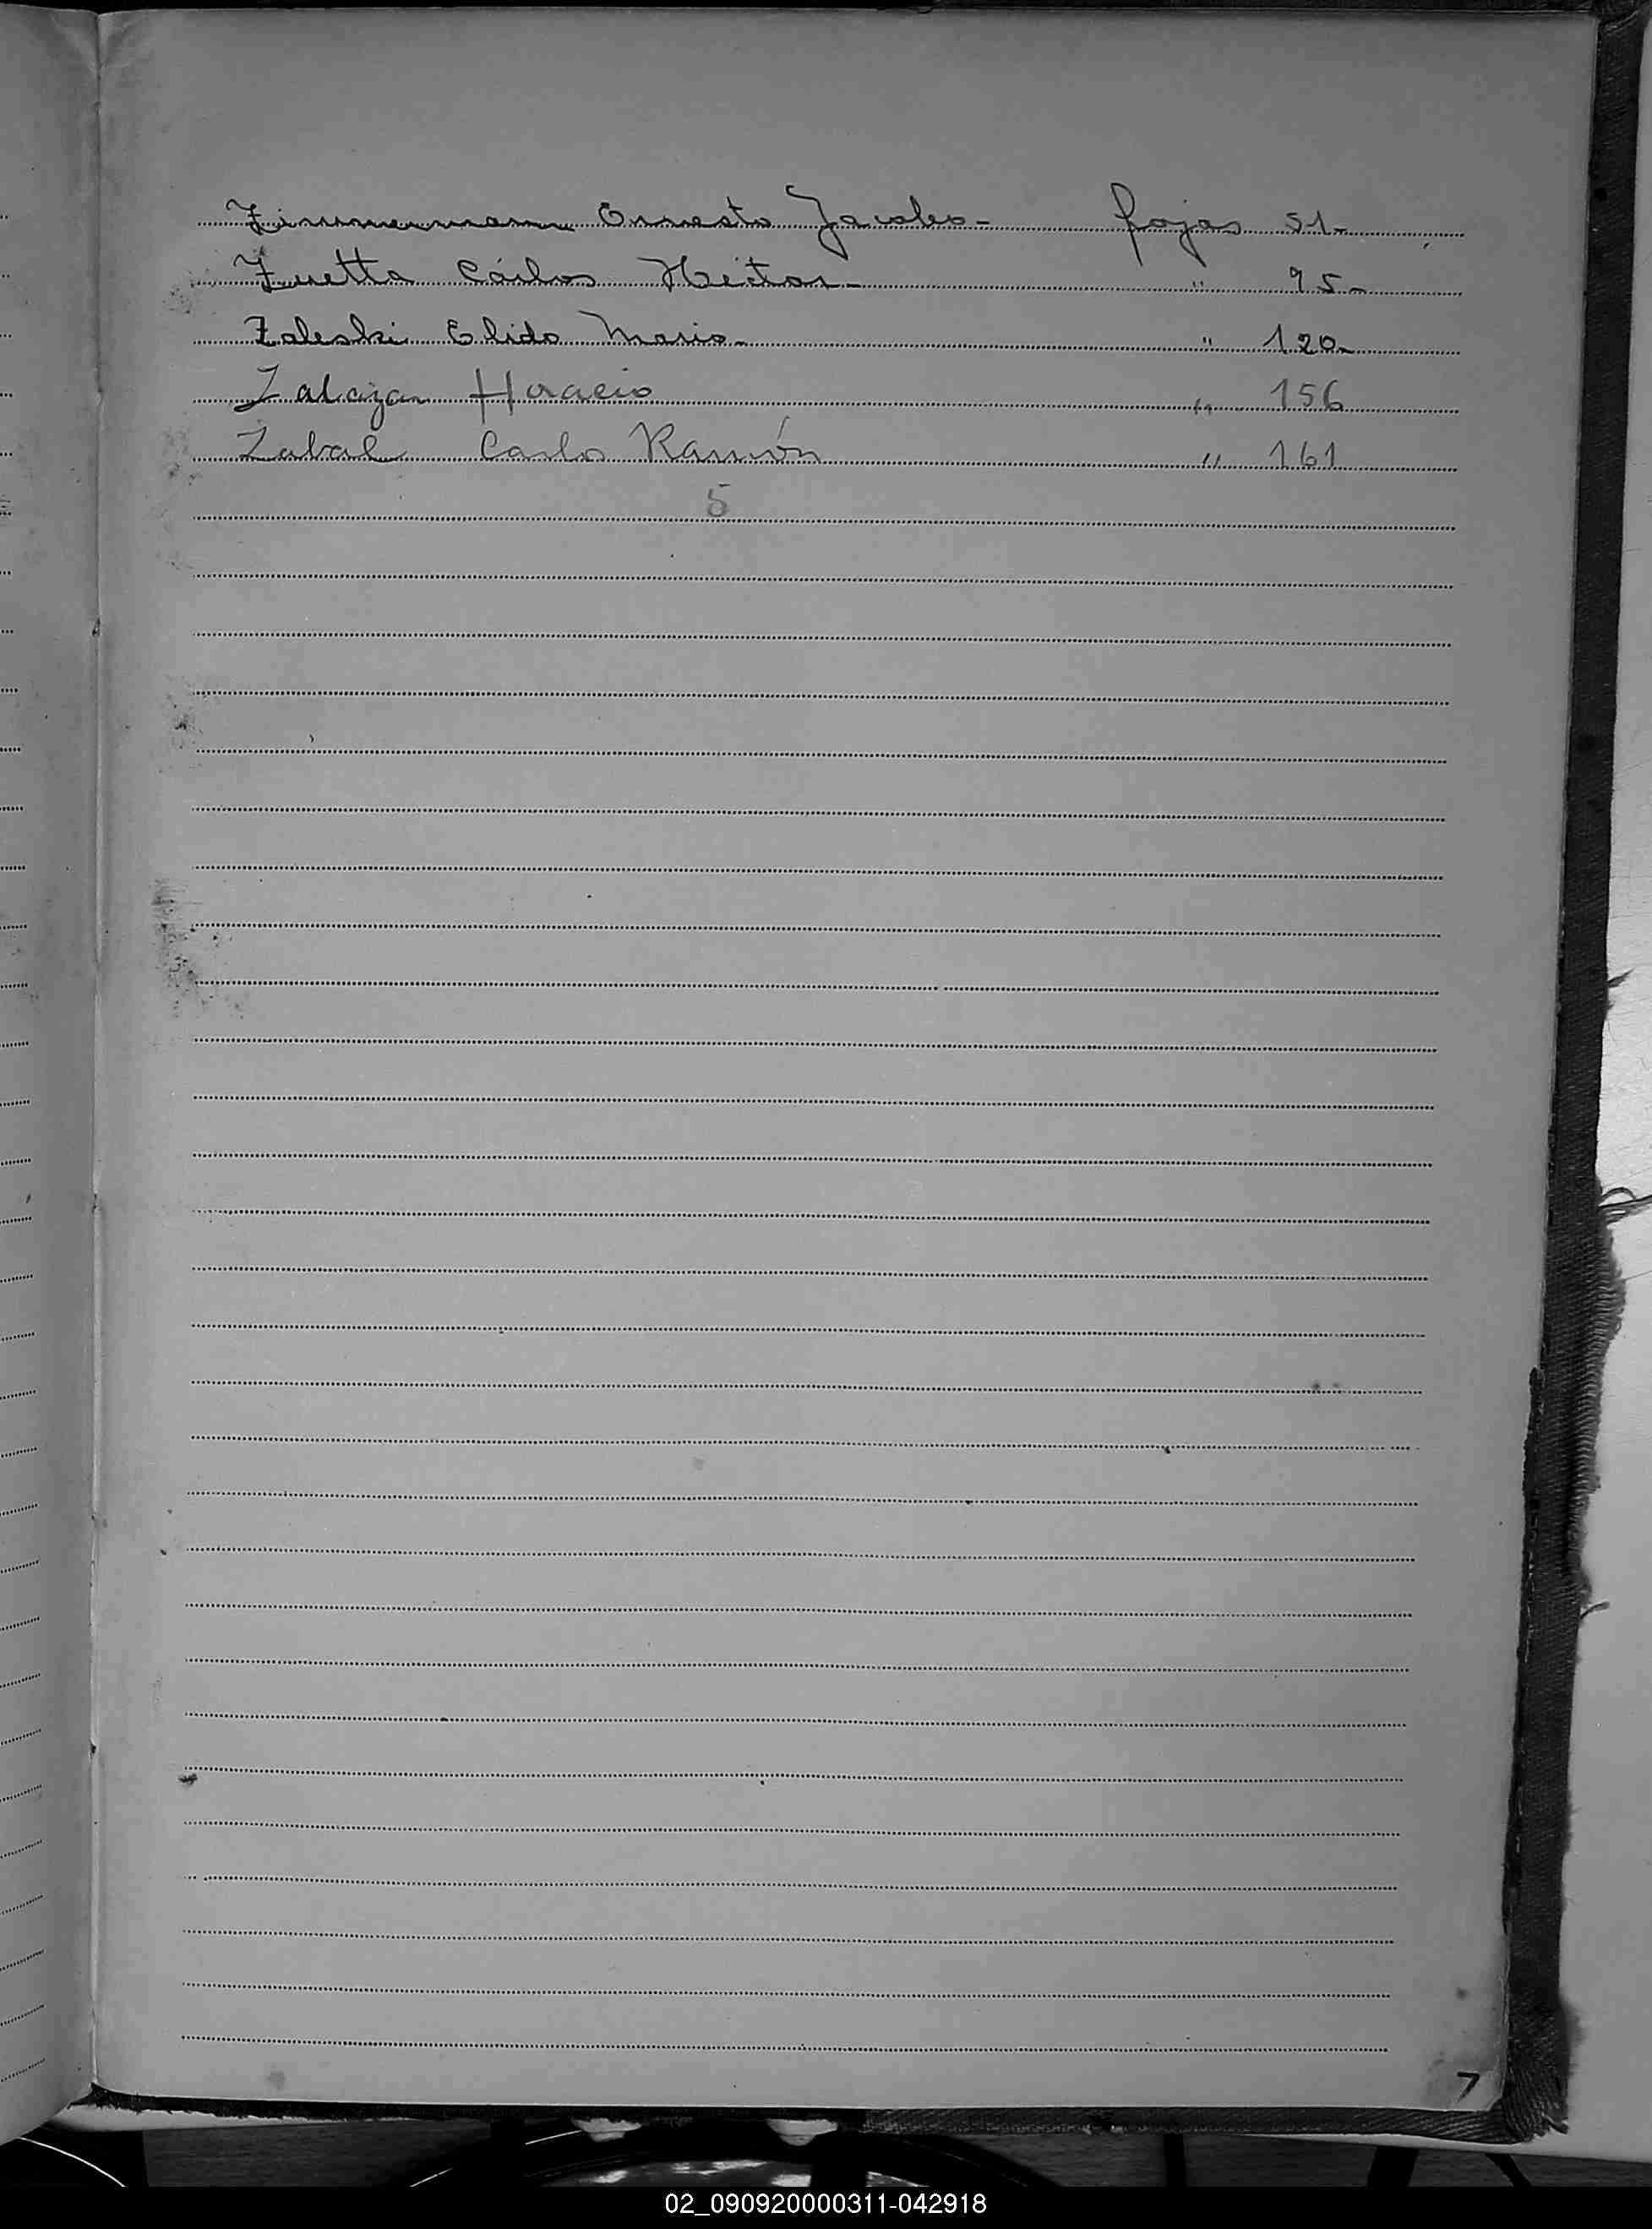 Zimmermann Ernesto Jacobo- fojas 51-
Zuetta Cárlos Héctor- " 95-
Zaleski Elido Mario- " 120-
Zalazar Horacio " 156
Zabal Carlos Ramón " 161
5
7
02_090920000311-042918